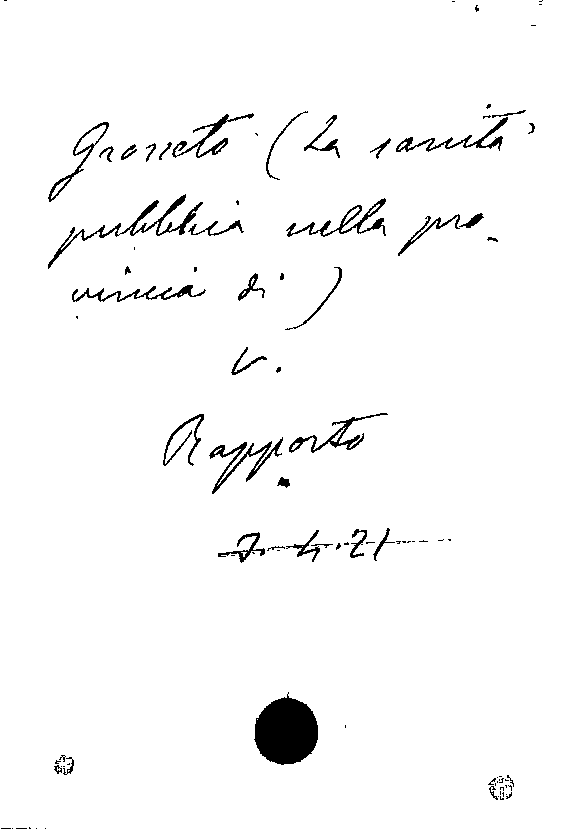 Grosseto (La sanità
pubblica nella pro-
vincia di)
V.
Rapporto
7.4.21